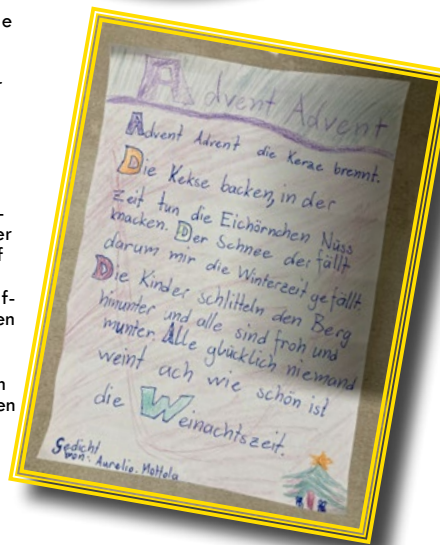 Advent Advent
Advent Advent die Kerze brennt.
Die Kekse backen, in der
Zeit tun die Eichörnchen Nüss
knacken. Der Schnee der fällt
darum mir die Winterzeit gefällt.
Die Kinder schlitteln den Berg
hinunter und alle sind froh und
munter. Alle glücklich niemand
weint ach wie schön ist
die Weinachtszeit.
Gedicht
von: Aurelio. Mottola